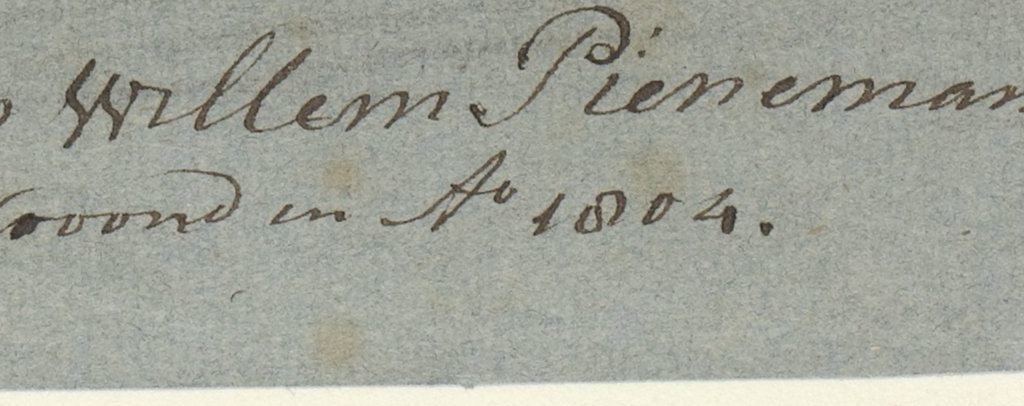 Willem Pieneman
woond in Aº 1804.